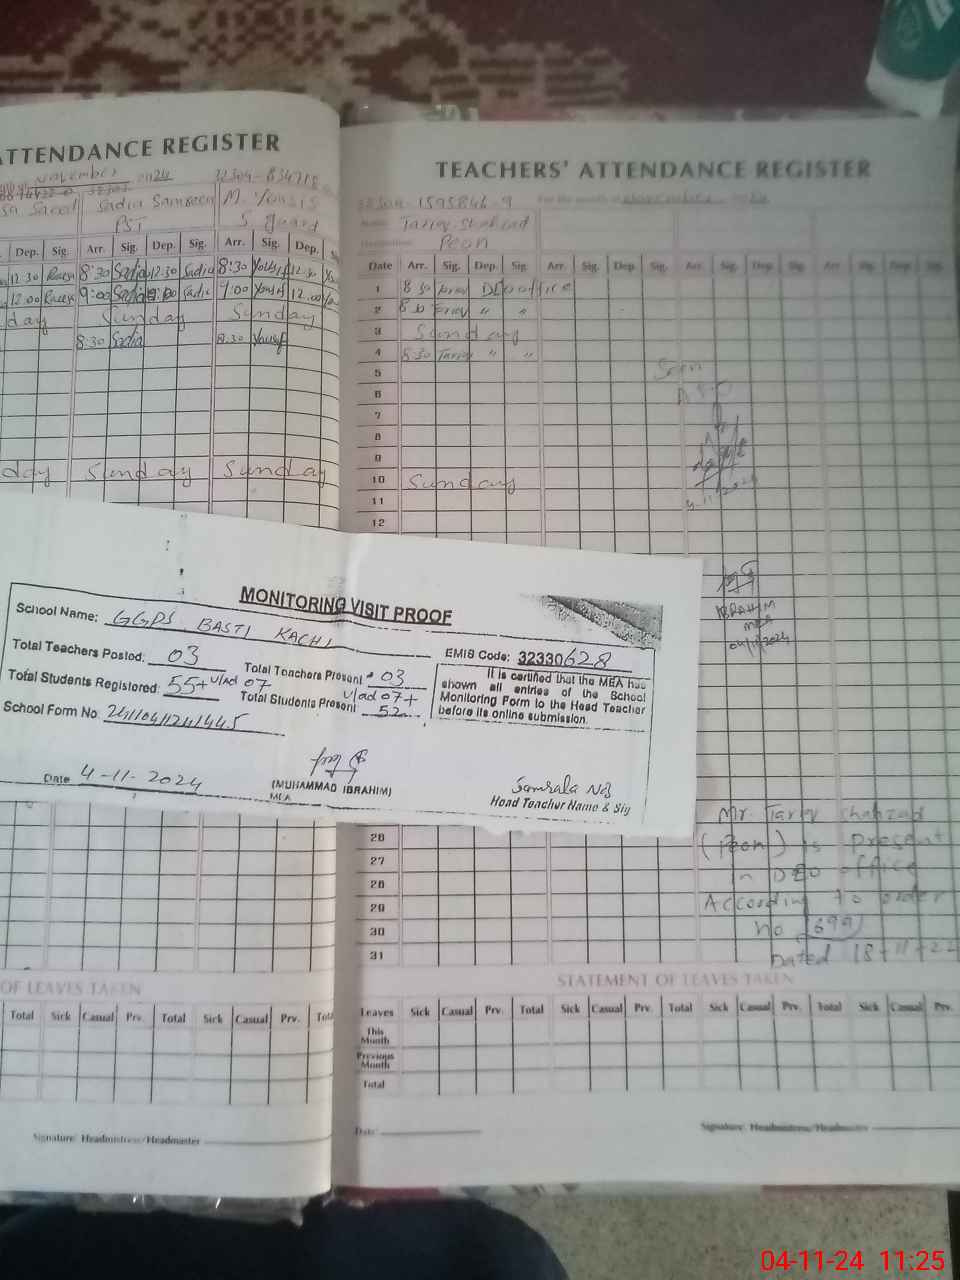 ATTENDANCE REGISTER
November 2024 32304-834718
Sa Saeed Sadia Samreen M. Yousis
PST S. guard
Dep. Sig. Arr. Sig. Dep. Sig. Arr. Sig. Dep.
12.30 8:30 Sadia 12.30 Sadia 8:30 Yousif 12.30
12.00 9:00 Sadia Sadia 9:00 Yousif 12.00
day Sunday Sunday
8:30 Sadia 8:30 Yousif
day Sunday Sunday
OF LEAVES TAKEN
Total Sick Casual Prv. Total Sick Casual Prv. Total
Signature: Headmistress/Headmaster
TEACHERS' ATTENDANCE REGISTER
32304-1595846-9 For the month of November
Name Tariq Shahzad
Peon
Date Arr. Sig. Dep. Sig. Arr. Sig. Dep. Sig. Arr. Sig. Dep. Sig. Arr. Sig. Dep. Sig.
1 8 30 Tariq DEO office
2 8 30 Tariq " "
3 Sunday
4 8:30 Tariq " "
5 Seen
6
7
8
9
10 Sunday
11
12
4-11-2024
IBRAHIM
MEA
04/11/2024
MONITORING VISIT PROOF
School Name: GGPS BASTI KACHI
EMIS Code: 32330628
Total Teachers Posted: 03 Total Teachers Present 03
Total Students Registered: 55+ U/ad 07 Total Students Present U/ad 07+ 52
School Form No: 2411041124144.5
It is certified that the MEA had
shown all entries of the School
Monitoring Form to the Head Teacher
before its online submission.
Date 4-11-2024
(MUHAMMAD IBRAHIM)
MEA
Head Teacher Name & Sig
26
27
28
29
30
31
Mr. Tariq Shahzad
(Peon) is present
in DEO office
According to order
no 699
Dated 18-11-22
STATEMENT OF LEAVES TAKEN
Leaves Sick Casual Prv. Total Sick Casual Prv. Total Sick Casual Prv. Total Sick Casual Prv.
This Month
Previous Month
Total
Date: Signature: Headmistress/Headmaster
04-11-24 11:25